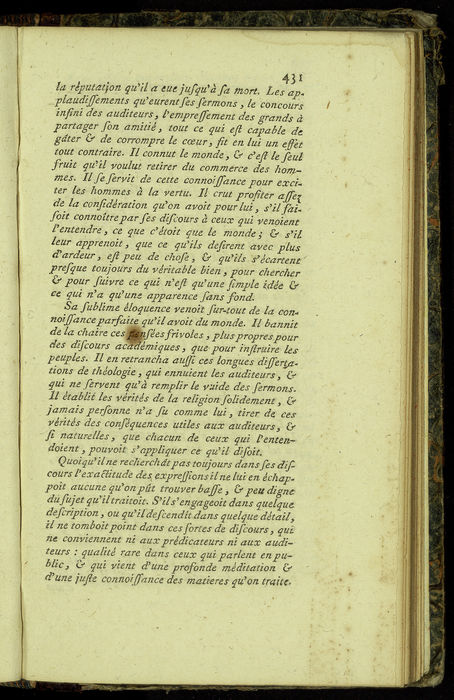 431
la réputation qu'il a eue juſqu'à ſa mort. Les ap-
plaudiſſements qu'eurent ſes ſermons, le concours
infini des auditeurs, l'empreſſement des grands à
partager ſon amitié, tout ce qui eſt capable de
gâter & de corrompre le cœur, fit en lui un effet
tout contraire. Il connut le monde, & c'eſt le ſeul
fruit qu'il voulut retirer du commerce des hom-
mes. Il ſe ſervit de cette connoiſſance pour exci-
ter les hommes à la vertu. Il crut profiter aſſez
de la conſidération qu'on avoit pour lui, s'il fai-
ſoit connoître par ſes diſcours à ceux qui venoient
l'entendre, ce que c'étoit que le monde; & s'il
leur apprenoit, que ce qu'ils deſirent avec plus
d'ardeur, eſt peu de choſe, & qu'ils s'écartent
preſque toujours du véritable bien, pour chercher
& pour ſuivre ce qui n'eſt qu'une ſimple idée &
ce qui n'a qu'une apparence ſans fond.
Sa ſublime éloquence venoit ſur-tout de la con-
noiſſance parfaite qu'il avoit du monde. Il bannit
de la chaire ces penſées frivoles, plus propres pour
des diſcours académiques, que pour inſtruire les
peuples. Il en retrancha auſſi ces longues diſſerta-
tions de théologie, qui ennuient les auditeurs, &
qui ne ſervent qu'à remplir le vuide des ſermons.
Il établit les vérités de la religion ſolidement, &
jamais perſonne n'a ſu comme lui, tirer de ces
vérités des conſéquences utiles aux auditeurs, &
ſi naturelles, que chacun de ceux qui l'enten-
doient, pouvoit s'appliquer ce qu'il diſoit.
Quoiqu'il ne recherchât pas toujours dans ſes diſ-
cours l'exactitude des expreſſions il ne lui en échap-
poit aucune qu'on pût trouver baſſe, & peu digne
du ſujet qu'il traitoit. S'il s'engageoit dans quelque
deſcription, ou qu'il deſcendit dans quelque détail,
il ne tomboit point dans ces ſortes de diſcours, qui
ne conviennent ni aux prédicateurs ni aux audi-
teurs : qualité rare dans ceux qui parlent en pu-
blic, & qui vient d'une profonde méditation &
d'une juſte connoiſſance des matieres qu'on traite.